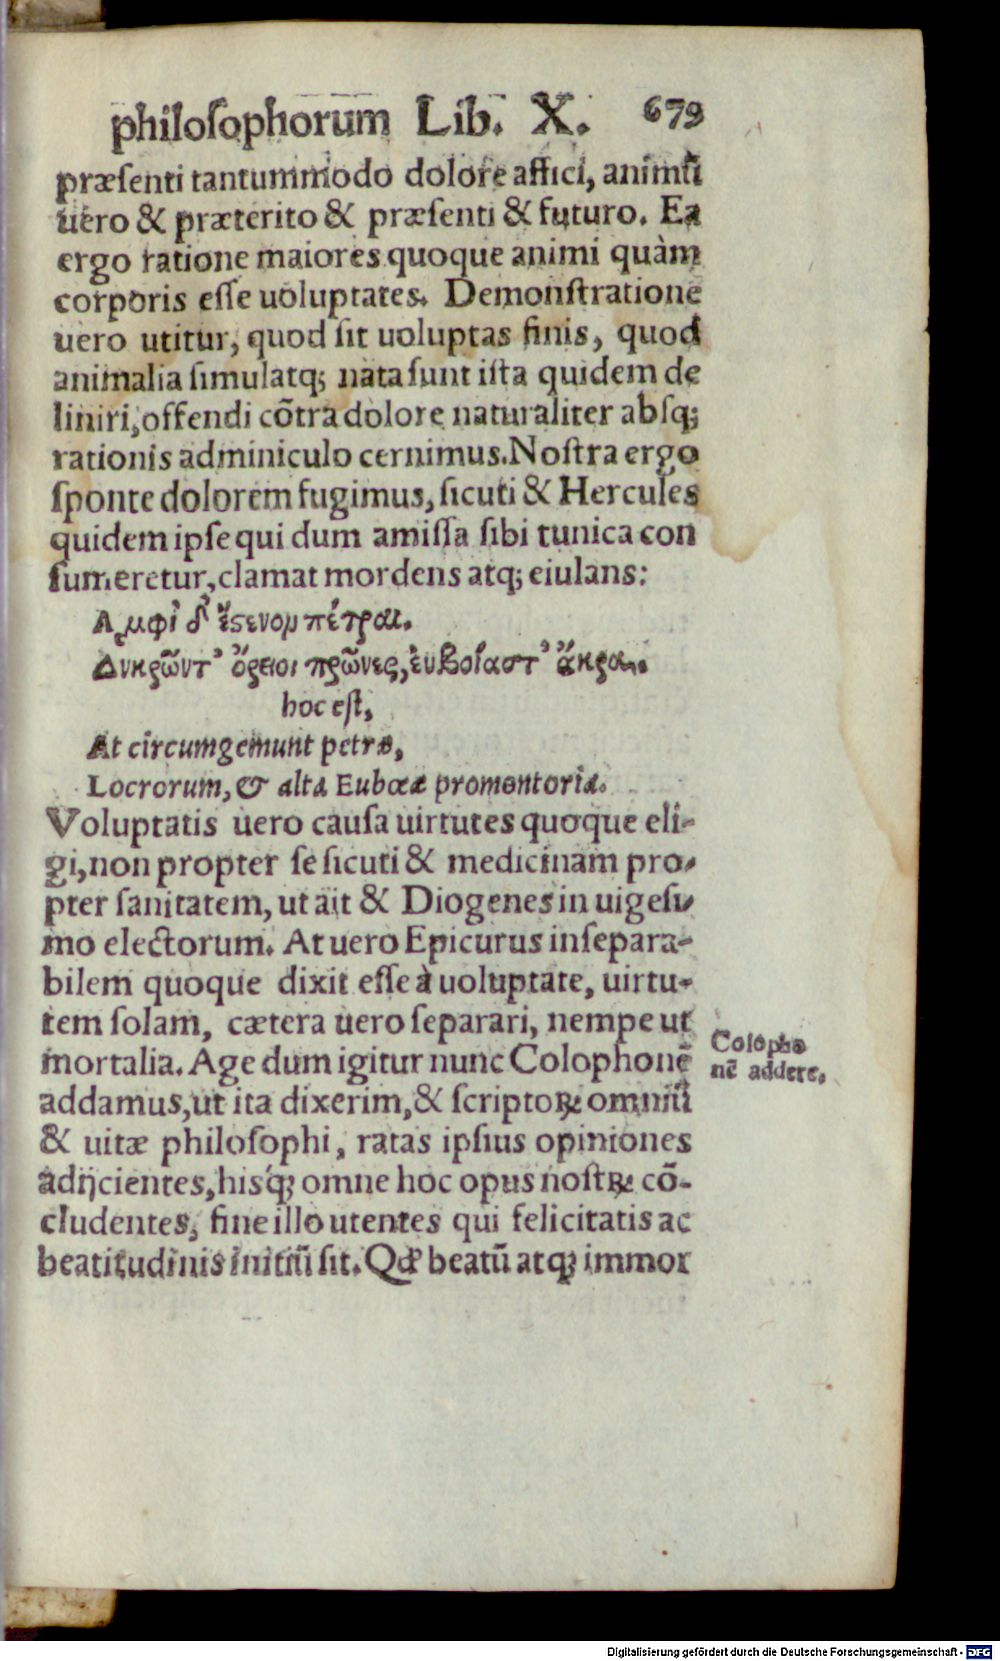 philoſophorum Lib. X. 679
præſenti tantummodo dolore affici, animũ
uero & præterito & præſenti & futuro. Ea
ergo ratione maiores quoque animi quàm
corporis eſſe uoluptates. Demonſtratione
uero utitur, quod ſit uoluptas finis, quod
animalia ſimulatq; nata ſunt iſta quidem de
liniri, offendi cõtra dolore naturaliter abſq;
rationis adminiculo cernimus. Noſtra ergo
ſponte dolorem fugimus, ſicuti & Hercules
quidem ipſe qui dum amiſſa ſibi tunica con
ſumeretur, clamat mordens atq; eiulans:
Αμφὶ δ' ἔςενομ πέτραι.
Δνκρῶντ' ὄρειοι πρῶνες, ἐυβοίαστ' ἄκραι.
hoc eſt,
At circumgemunt petræ,
Locrorum, & alta Eubœæ promontoria.
Voluptatis uero cauſa uirtutes quoque eli-
gi, non propter ſe ſicuti & medicinam pro-
pter ſanitatem, ut ait & Diogenes in uigeſi-
mo electorum. At uero Epicurus inſepara-
bilem quoque dixit eſſe à uoluptate, uirtu-
tem ſolam, cætera uero ſeparari, nempe ut
mortalia. Age dum igitur nunc Colophonẽ
addamus, ut ita dixerim, & ſcriptoꝝ omniũ
& uitæ philoſophi, ratas ipſius opiniones
adijcientes, hisq́; omne hoc opus noſtꝝ cõ-
cludentes, fine illo utentes qui felicitatis ac
beatitudinis initiũ ſit. Qd' beatũ atq; immor
Colopho
nẽ addere.
Digitalisierung gefördert durch die Deutsche Forschungsgemeinschaft - DFG